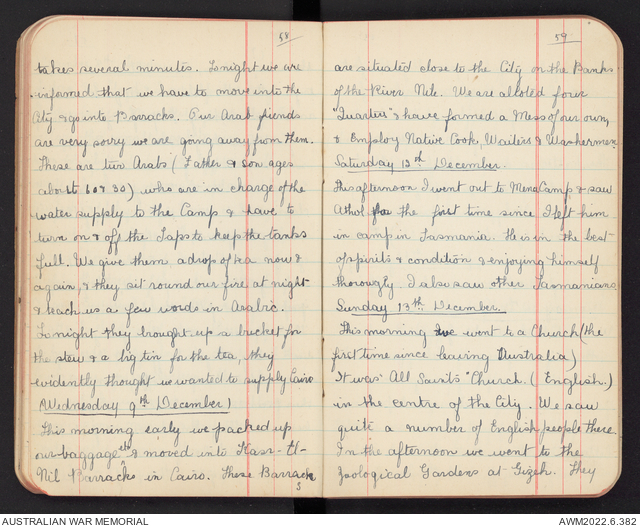 58
takes several minutes. Tonight we are
informed that we have to move into the
City & go into Barracks. Our Arab friends
are very sorry we are going away from them.
There are two Arabs (Father & Son ages
about 60 & 30) who are in charge of the
water supply to the Camp & have to
turn on & off the Taps to keep the tanks
full. We give them a drop of tea now &
again, & they sit round our fire at night
& teach us a few words in Arabic.
Tonight they brought up a bucket for
the stew & a big tin for the tea, they
evidently thought we wanted to supply Cairo
(Wednesday 9th December)
This morning early we packed up
our baggage etc & moved into Kasr-El-
Nil Barracks in Cairo. These Barracks
59
are situated close to the City on the Banks
of the River Nile. We are alloted four
"Quarters" & have formed a Mess of our own,
& Employ Native Cook, Waiters & Washermen
Saturday 12th December.
This afternoon I went out to Mena Camp & saw
Athol for the first time since I left him
in camp in Tasmania. He is in the best
of spirits & condition & enjoying himself
thorougly. I also saw other Tasmanians
Sunday 13th December.
This morning we went to a Church (the
first time since leaving Australia)
It was "All Saints" Church. (English.)
in the centre of the City. We saw
quite a number of English people there.
In the afternoon we went to the
Zoological Gardens at Gizeh. They
AUSTRALIAN WAR MEMORIAL
AWM2022.6.382